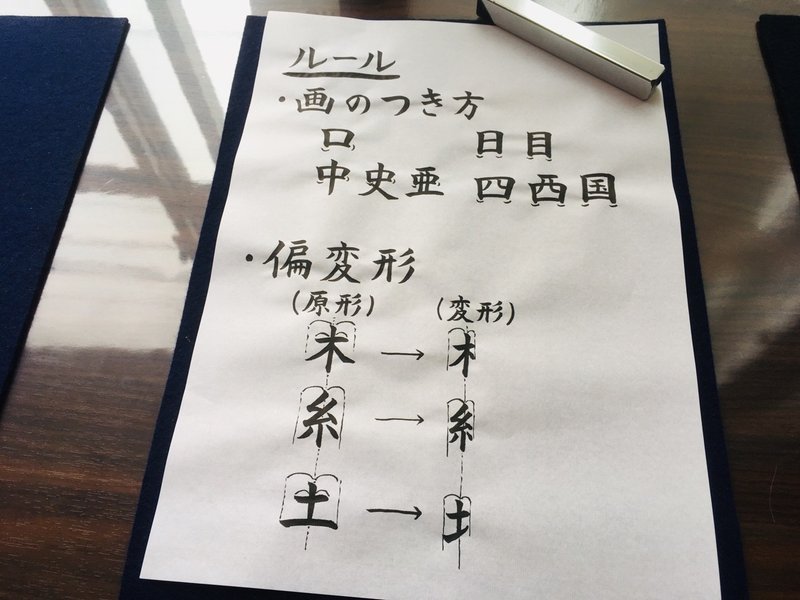 ルール
・画のつき方
口 日目
中史亜 四西国
・偏変形
(原形) (変形)
木 → 木
糸 → 糸
土 → 土